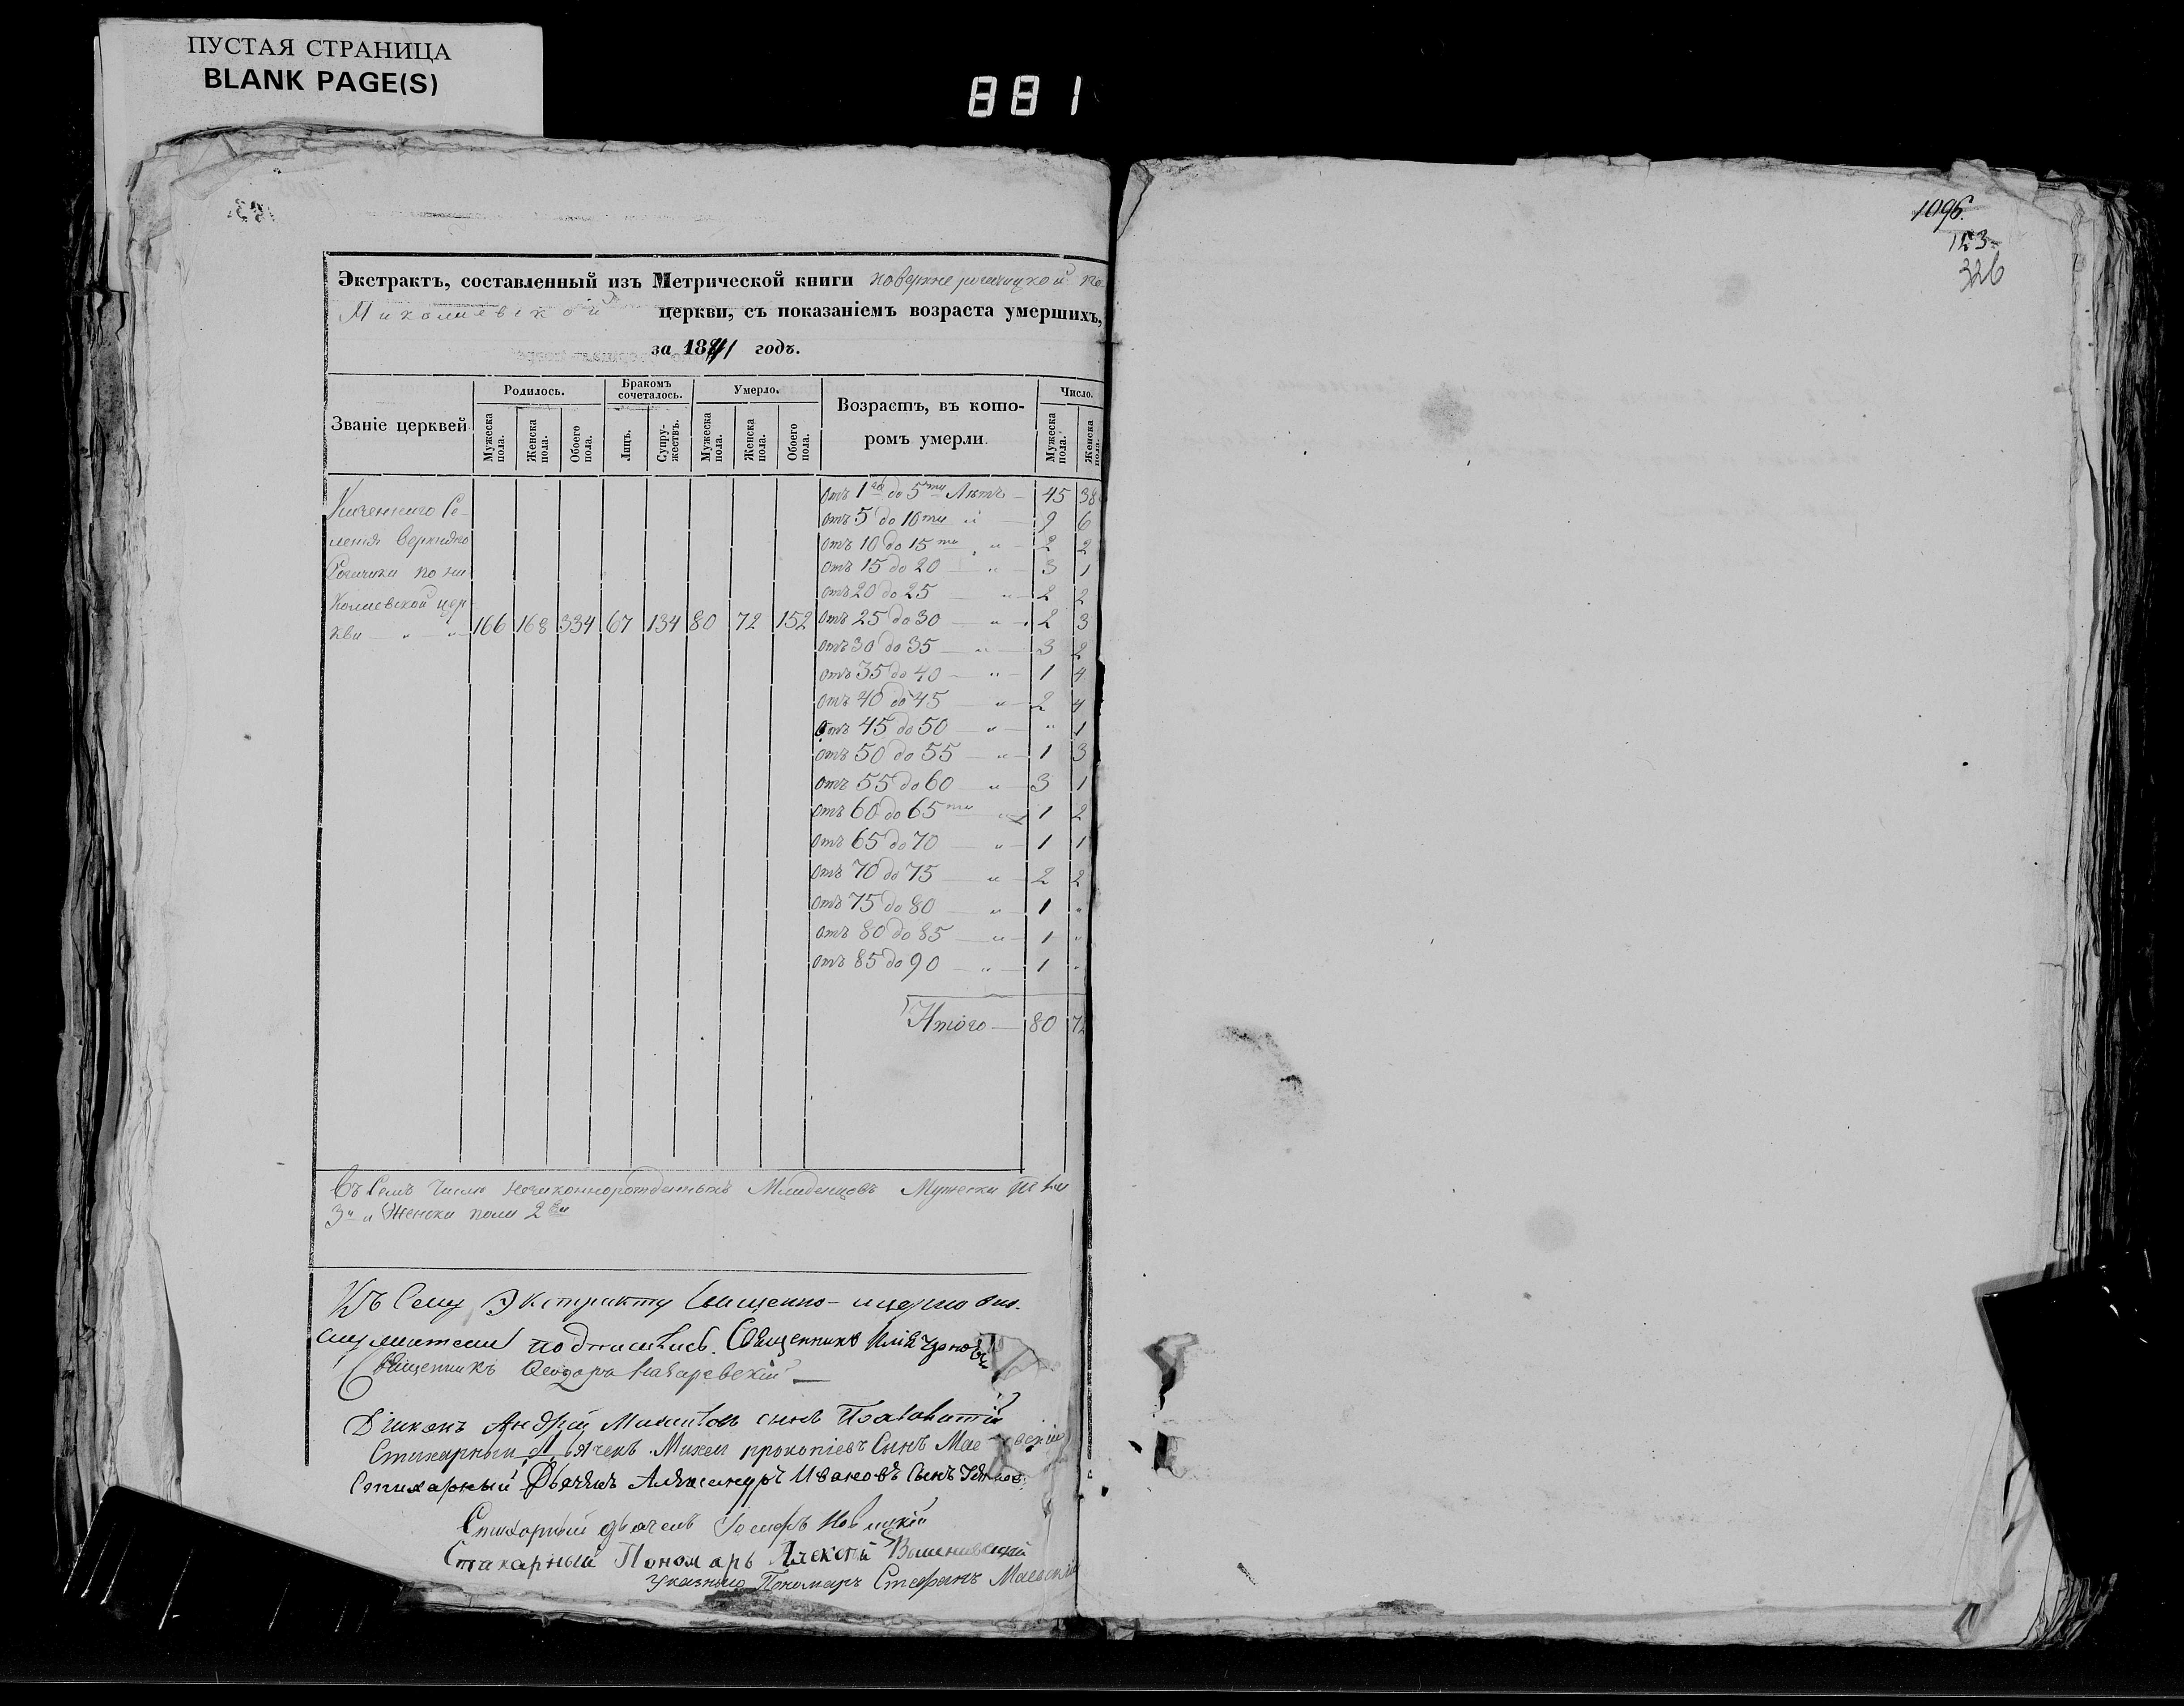 ПУСТАЯ СТРАНИЦА
BLANK PAGE(S)
881
Экстрактъ, составленный изъ Метрической книги
церкви, съ показаніемъ возраста умершихъ,
за 1841 годъ.
Званіе церквей
Родилось.
Бракомъ сочеталось.
Умерло.
Возрастъ, въ которомъ умерли.
Число.
Мужеска пола.
Женска пола.
Обоего пола.
Лицъ.
Супружествъ.
Мужеска пола.
Женска пола.
Обоего пола.
Мужеска пола.
Женска пола.
Казеннаго Се-
ленія Верхняго
Рогачика по Ни
колаевской цер
кви — " — " 166 168 334 67 134 80 72 152
отъ 1го до 5ти Летъ — 45 38
отъ 5 до 10ти " — 9 6
отъ 10 до 15ти " — 2 2
отъ 15 до 20 — " — 3 1
отъ 20 до 25 — " — 2 2
отъ 25 до 30 — " — 2 3
отъ 30 до 35 — " — 3 2
отъ 35 до 40 — " — 1 4
отъ 40 до 45 — " — 2 4
отъ 45 до 50 — " — " 1
отъ 50 до 55 — " — 1 3
отъ 55 до 60 — " — 3 1
отъ 60 до 65ти " 1 2
отъ 65 до 70 — " — 1 1
отъ 70 до 75 — " — 2 2
отъ 75 до 80 — " — 1 "
отъ 80 до 85 — " — 1 "
отъ 85 до 90 — " — 1 "
Итого — 80 72
Въ Семъ Числе незаконнорожденныхъ Младенцовъ Мужска
3 и Женска пола 2
Къ Сему Экстракту Священно-
подписались. Священникъ Илія
Священникъ Феодоръ Макаревскій —
Діаконъ Андрей сынъ
Стихарный Дьячекъ Прокопіевъ Сынъ
Стихарный Дьячекъ Александръ Ивановъ Сынъ
Стихарный дьячекъ Іосифъ
Стихарный Пономарь Алексей
Указный Пономарь Стефанъ
1096.
153
326